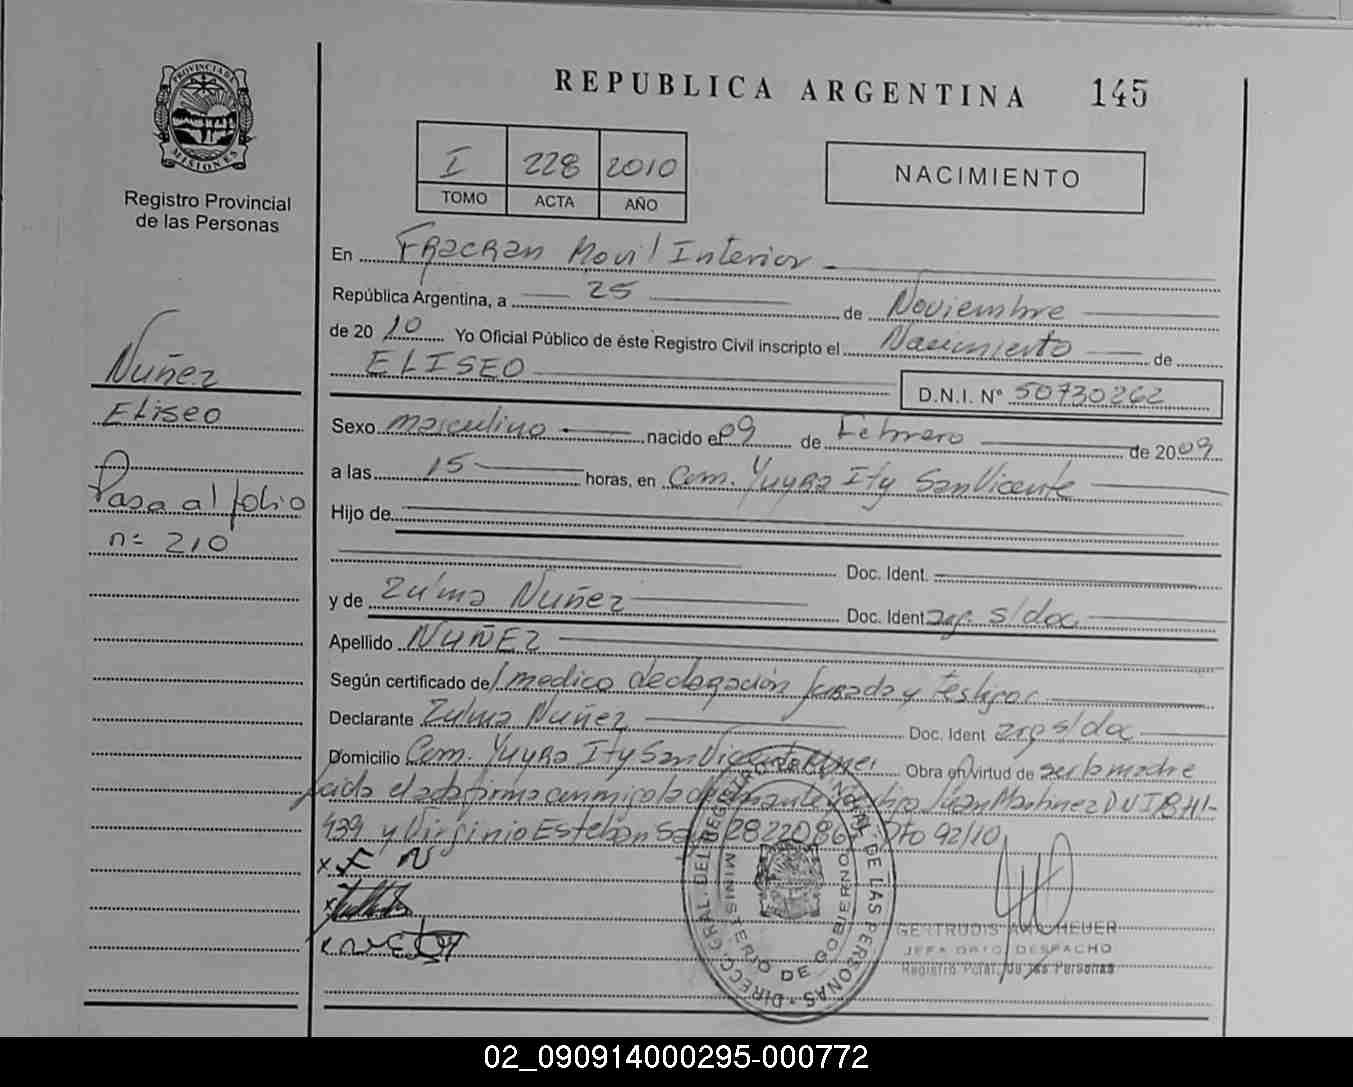 REPUBLICA ARGENTINA 145
PROVINCIA DE MISIONES
Registro Provincial
de las Personas
I 228 2010
TOMO ACTA AÑO
NACIMIENTO
En Fracran Movil Interior
República Argentina, a 25 de Noviembre
de 2010 Yo Oficial Público de éste Registro Civil inscripto el Nacimiento de
ELISEO
D.N.I. N° 50730262
Sexo masculino nacido el 09 de Febrero de 2009
a las 15 horas, en Com. Yuyra Ity San Vicente
Hijo de
Doc. Ident.
y de Zulma Nuñez Doc. Ident arg. s/doc.
Apellido NUÑEZ
Según certificado de medico declaración jurada y testigos
Declarante Zulma Nuñez Doc. Ident arg s/doc
Domicilio Com. Yuyra Ity San Vicente Obra en virtud de ser la madre
Leida el acta firma conmigo la declarante y Juan Martinez
439 y Virginio Esteban 2822086 Dto 92/10
x Z N
x
x
Nuñez
Eliseo
Pasa al folio
n= 210
DIRECC. GRAL. DEL REGISTRO PROVINCIAL DE LAS PERSONAS
MINISTERIO DE GOBIERNO
GERTRUDIS HEUER
JEFA DPTO. DESPACHO
Registro Pcial. de las Personas
02_090914000295-000772